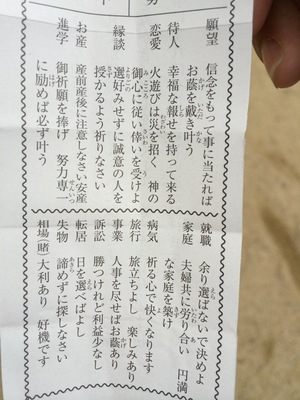 願望 信念をもって事に当たれば
お蔭を戴き叶う
待人 幸福な報せを持って来る
恋愛 火遊びは災を招く 神の
御心に従い倖いを受けよ
縁談 選好みせずに誠意の人を
授かるよう祈りなさい
お産 産前産後に注意しなさい安産
進学 御祈願を捧げ 努力専一
に励めば必ず叶う
就職 余り選ばないで決めよ
家庭 夫婦共に労り合い 円満
な家庭を築け
病気 祈る心で快くなります
旅行 旅立ちよし 楽しみあり
事業 人事を尽せばお蔭あり
訴訟 勝つけれど利益少なし
転居 日を選べばよし
失物 諦めずに探しなさい
相場(賭) 大利あり 好機です